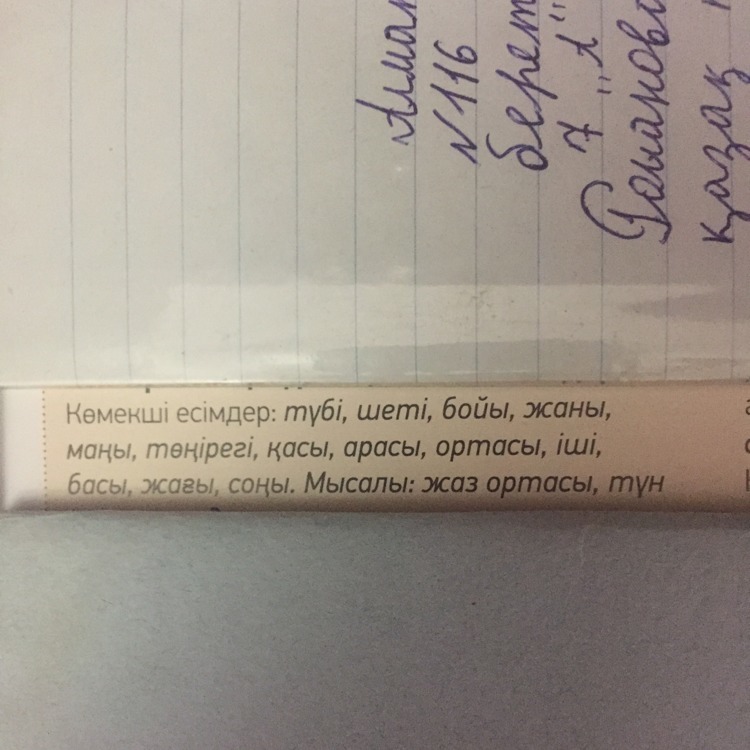 Алма
№116
берет
7 "л"
Романов
қазақ
Көмекші есімдер: түбі, шеті, бойы, жаны,
маңы, төңірегі, қасы, арасы, ортасы, іші,
басы, жағы, соңы. Мысалы: жаз ортасы, түн